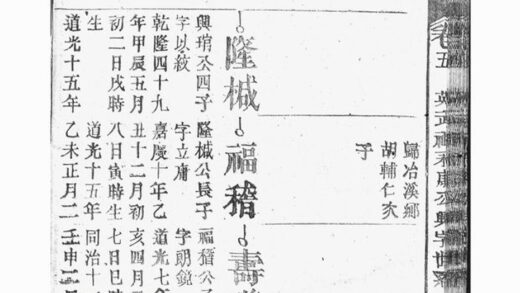 卷五 英武福禾康公興字世系
歸冶溪鄉
胡輔仁次
子
隆棫 福稽 壽
興琯公四子 隆棫公長子 福稽公
字以紋 字立庸 字朗鏡
乾隆四十九 嘉慶十年乙 道光七年
年甲辰五月 丑十二月初 亥四月
初二日戌時 八日寅時生 七日巳時
生 道光十五年 同治十
道光十五年 乙未正月二 壬申二